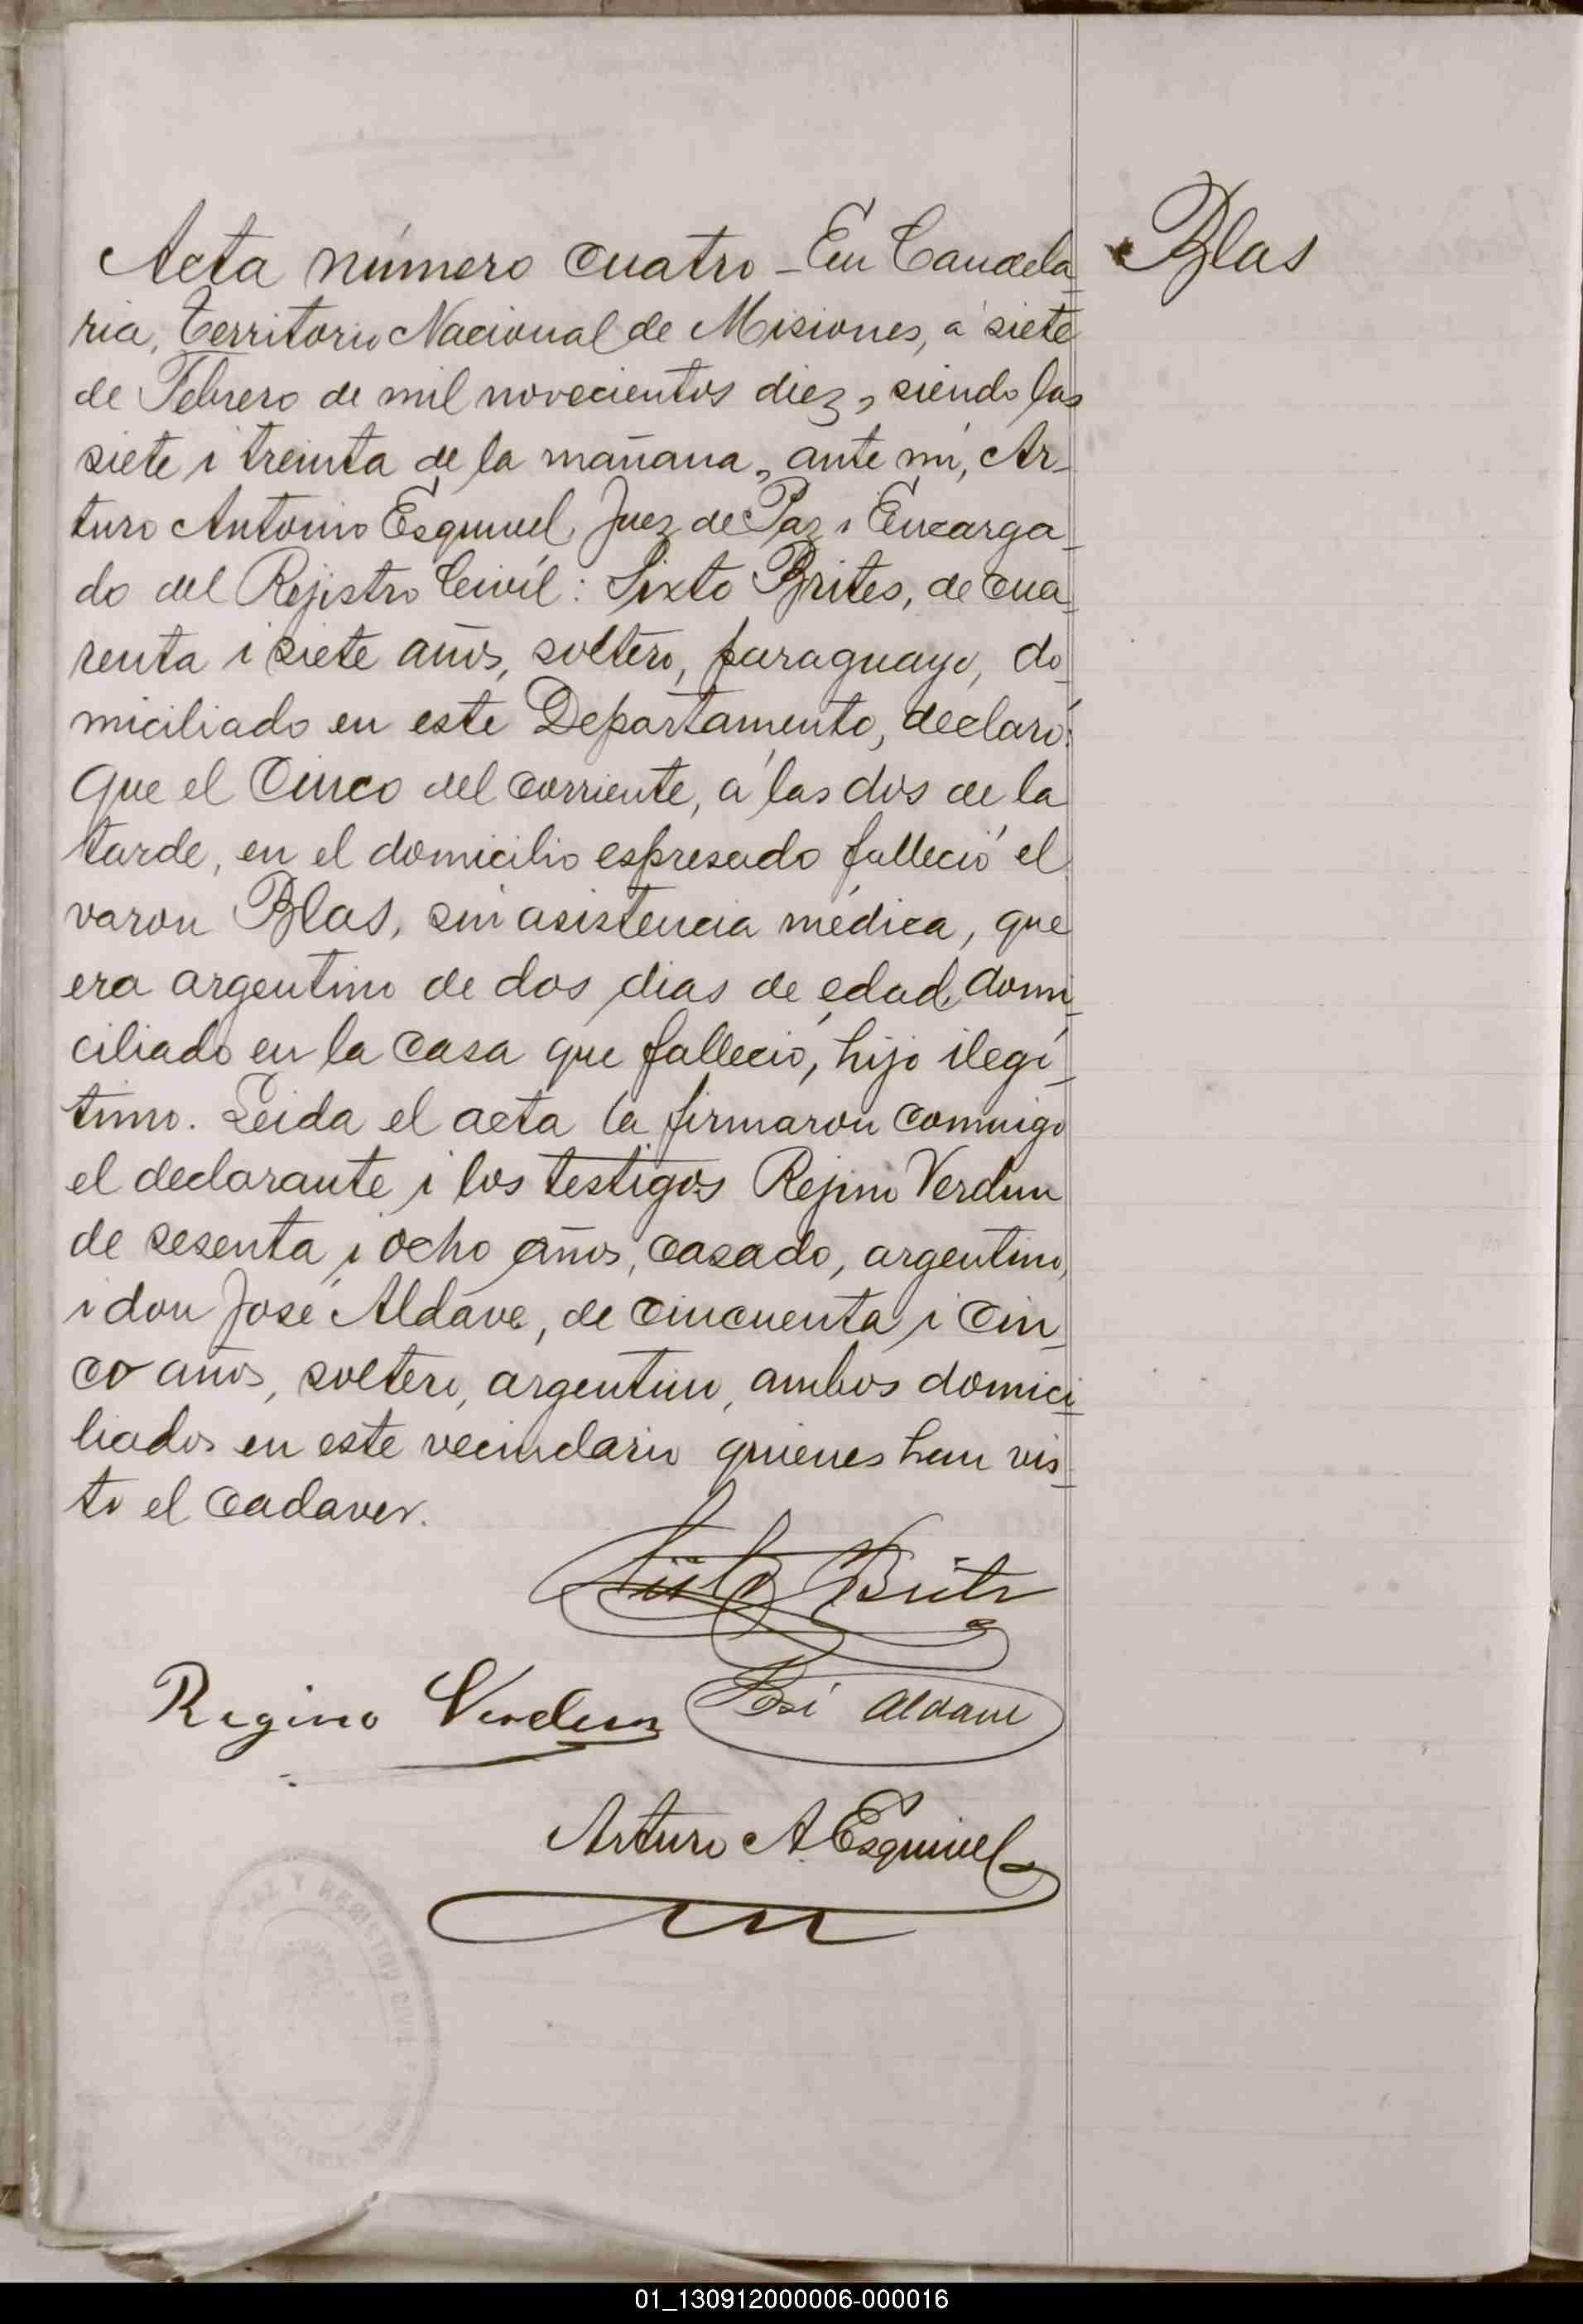 Acta número cuatro - En Candela-
ria, Territorio Nacional de Misiones, á siete
de Febrero de mil novecientos diez, siendo las
siete i treinta de la mañana, ante mí, Ar-
turo Antonio Esquivel, Juez de Paz i Encarga-
do del Rejistro Civíl: Sixto Brites, de cua-
renta i siete años, soltero, paraguayo, do-
miciliado en este Departamento, declaró:
Que el Cinco del corriente, á las dos de la
tarde, en el domicilio espresado falleció el
varon Blas, sin asistencia médica, que
era argentino de dos dias de edad, domi-
ciliado en la casa que falleció, hijo ilegí-
timo. Leida el acta la firmaron conmigo
el declarante i los testigos Rejino Verdun
de sesenta i ocho años, casado, argentino,
i don José Aldave, de cincuenta i cin-
co años, soltero, argentino, ambos domici-
liados en este vecindario quienes han vis-
to el cadaver.
Blas
Sixto Brites
Regino Verdun
José Aldave
Arturo A. Esquivel
01_130912000006-000016